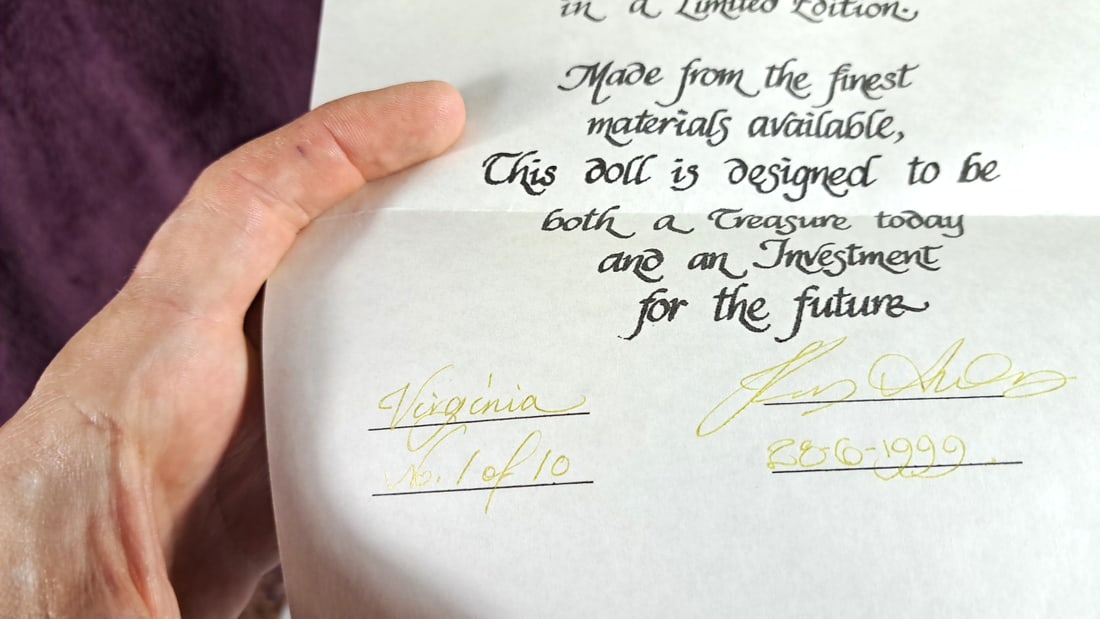 in a Limited Edition.
Made from the finest
materials available,
This doll is designed to be
both a Treasure today
and an Investment
for the future
Virginia
No. 1 of 10
28-6-1999